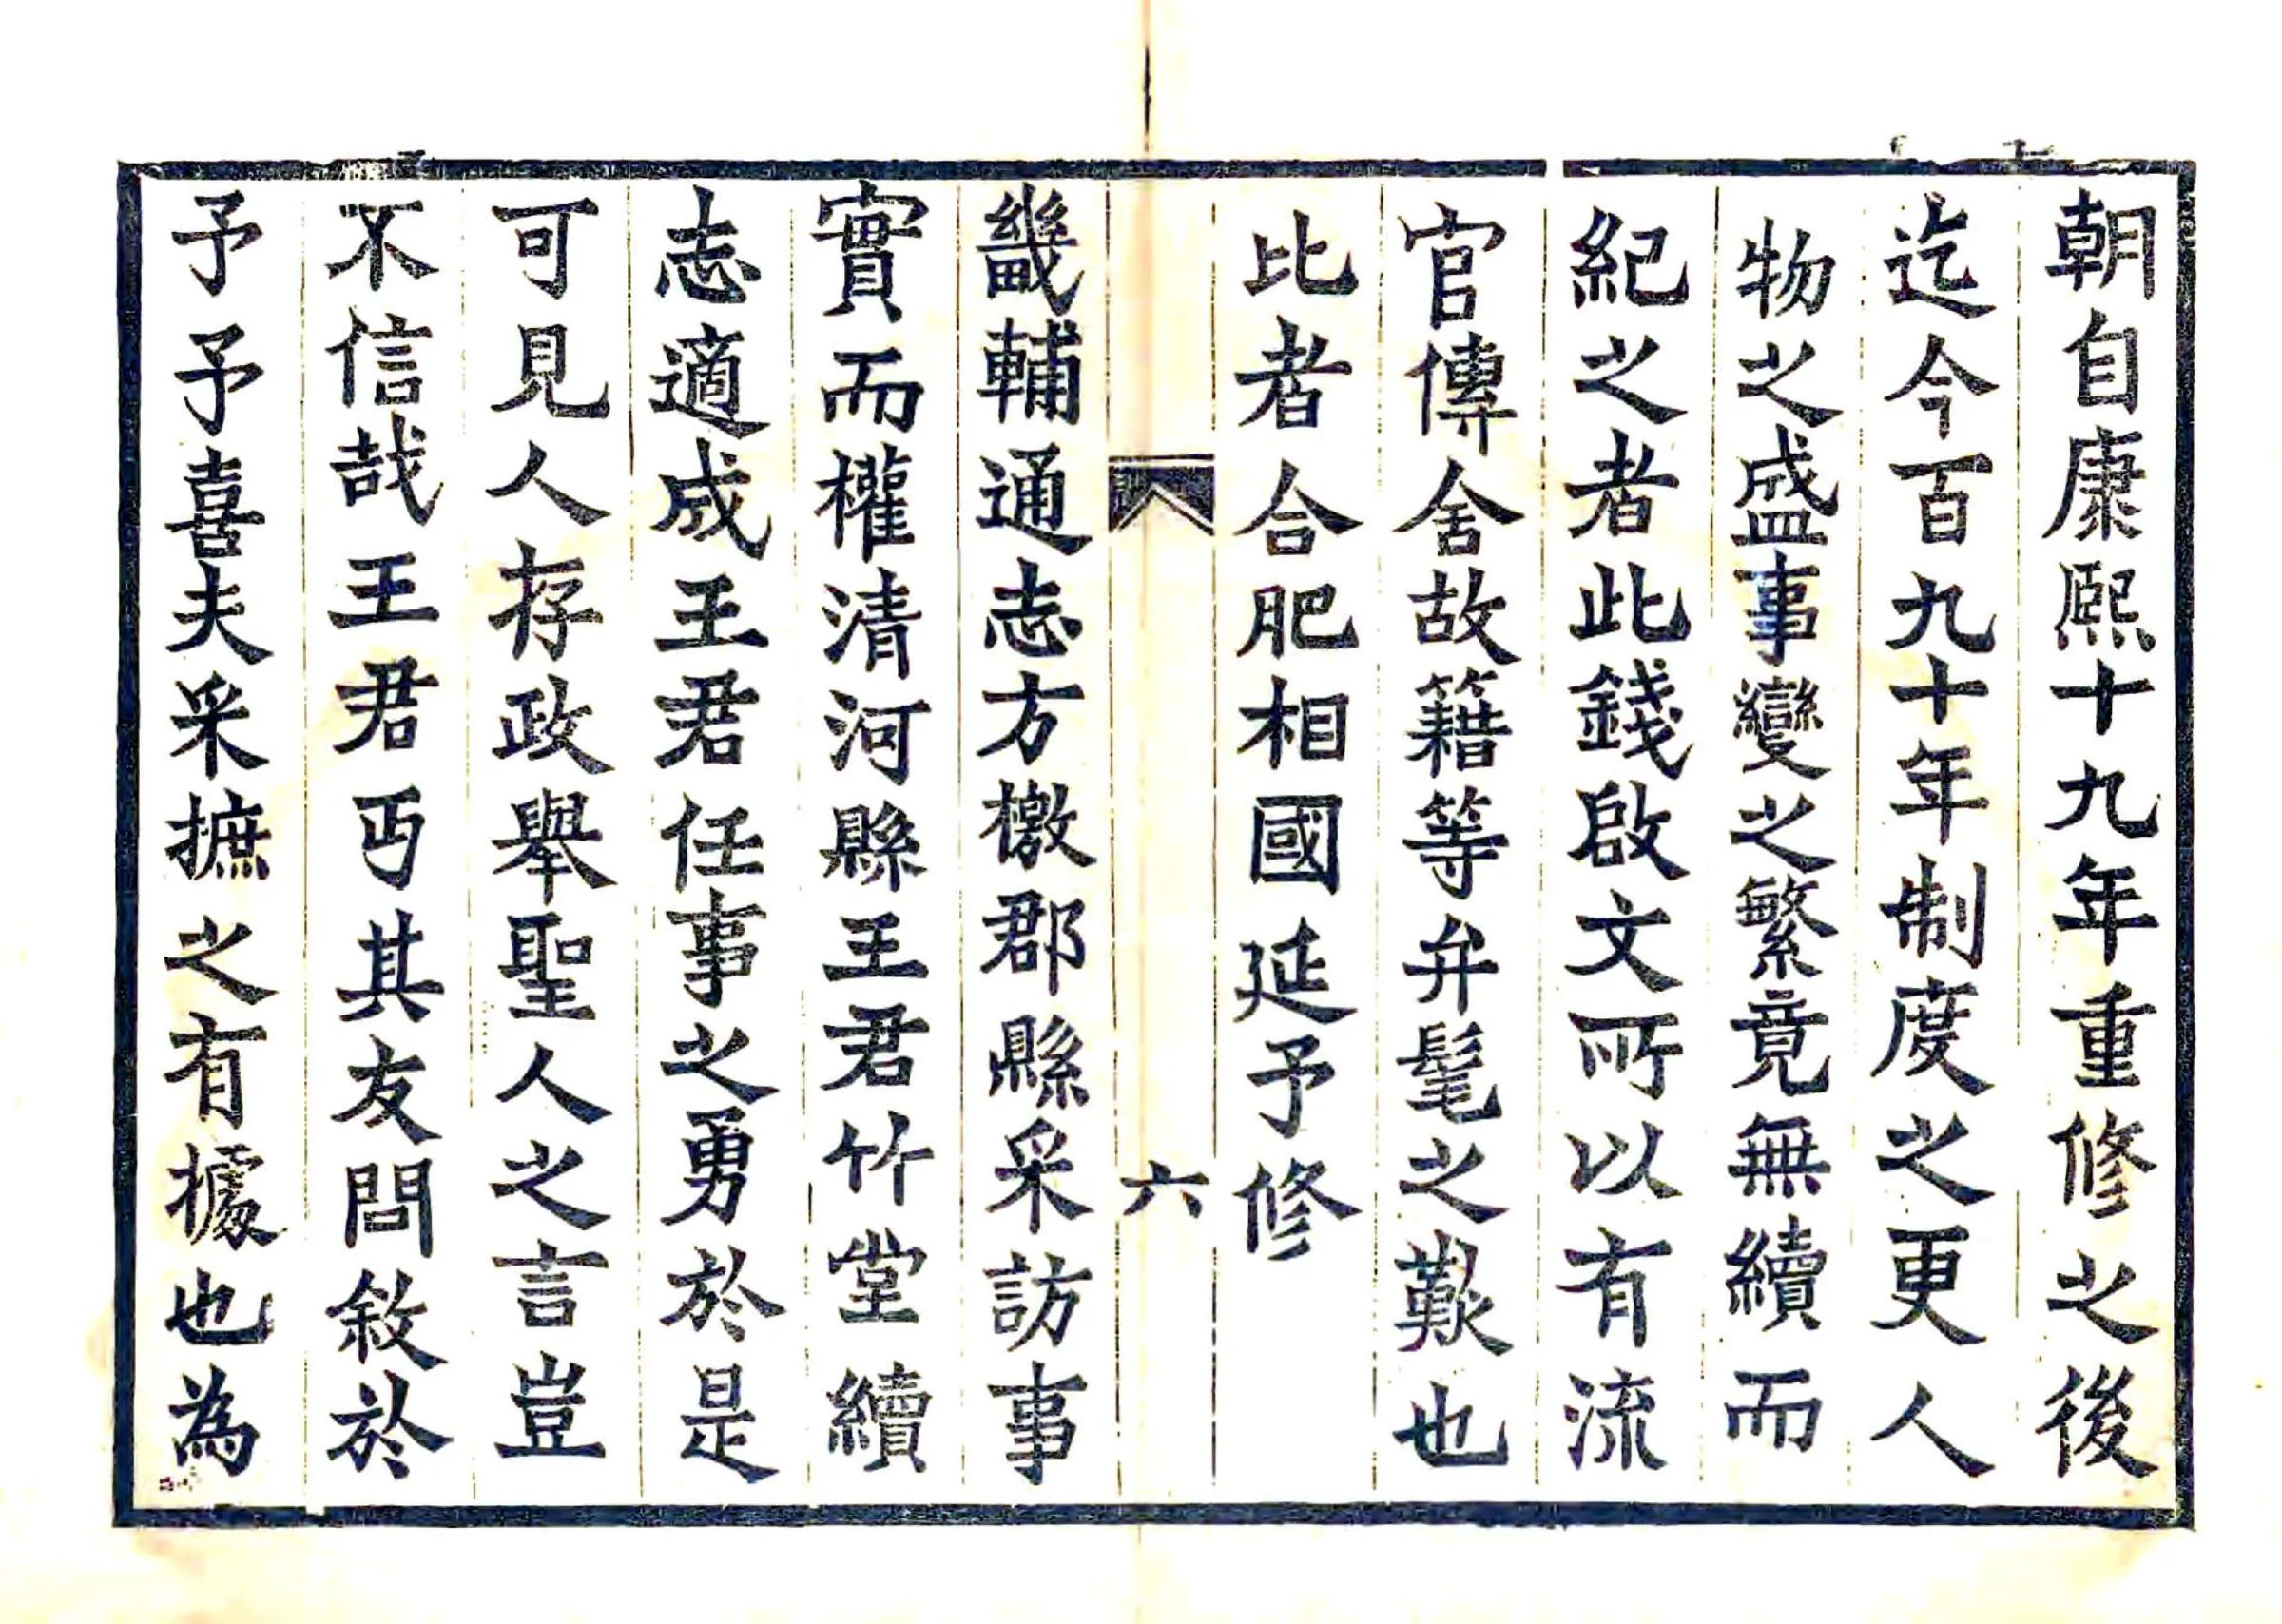 朝自康熙十九年重修之後
迄今百九十年制度之更人
物之盛事變之繁竟無續而
紀之者此錢啟文所以有流
官傳舍故籍等弁髦之歎也
比者合肥相國延予修
六
畿輔通志方檄郡縣采訪事
實而權清河縣王君竹堂續
志適成王君任事之勇於是
可見人存政舉聖人之言豈
不信哉王君丐其友問敘於
予予喜夫采摭之有據也為